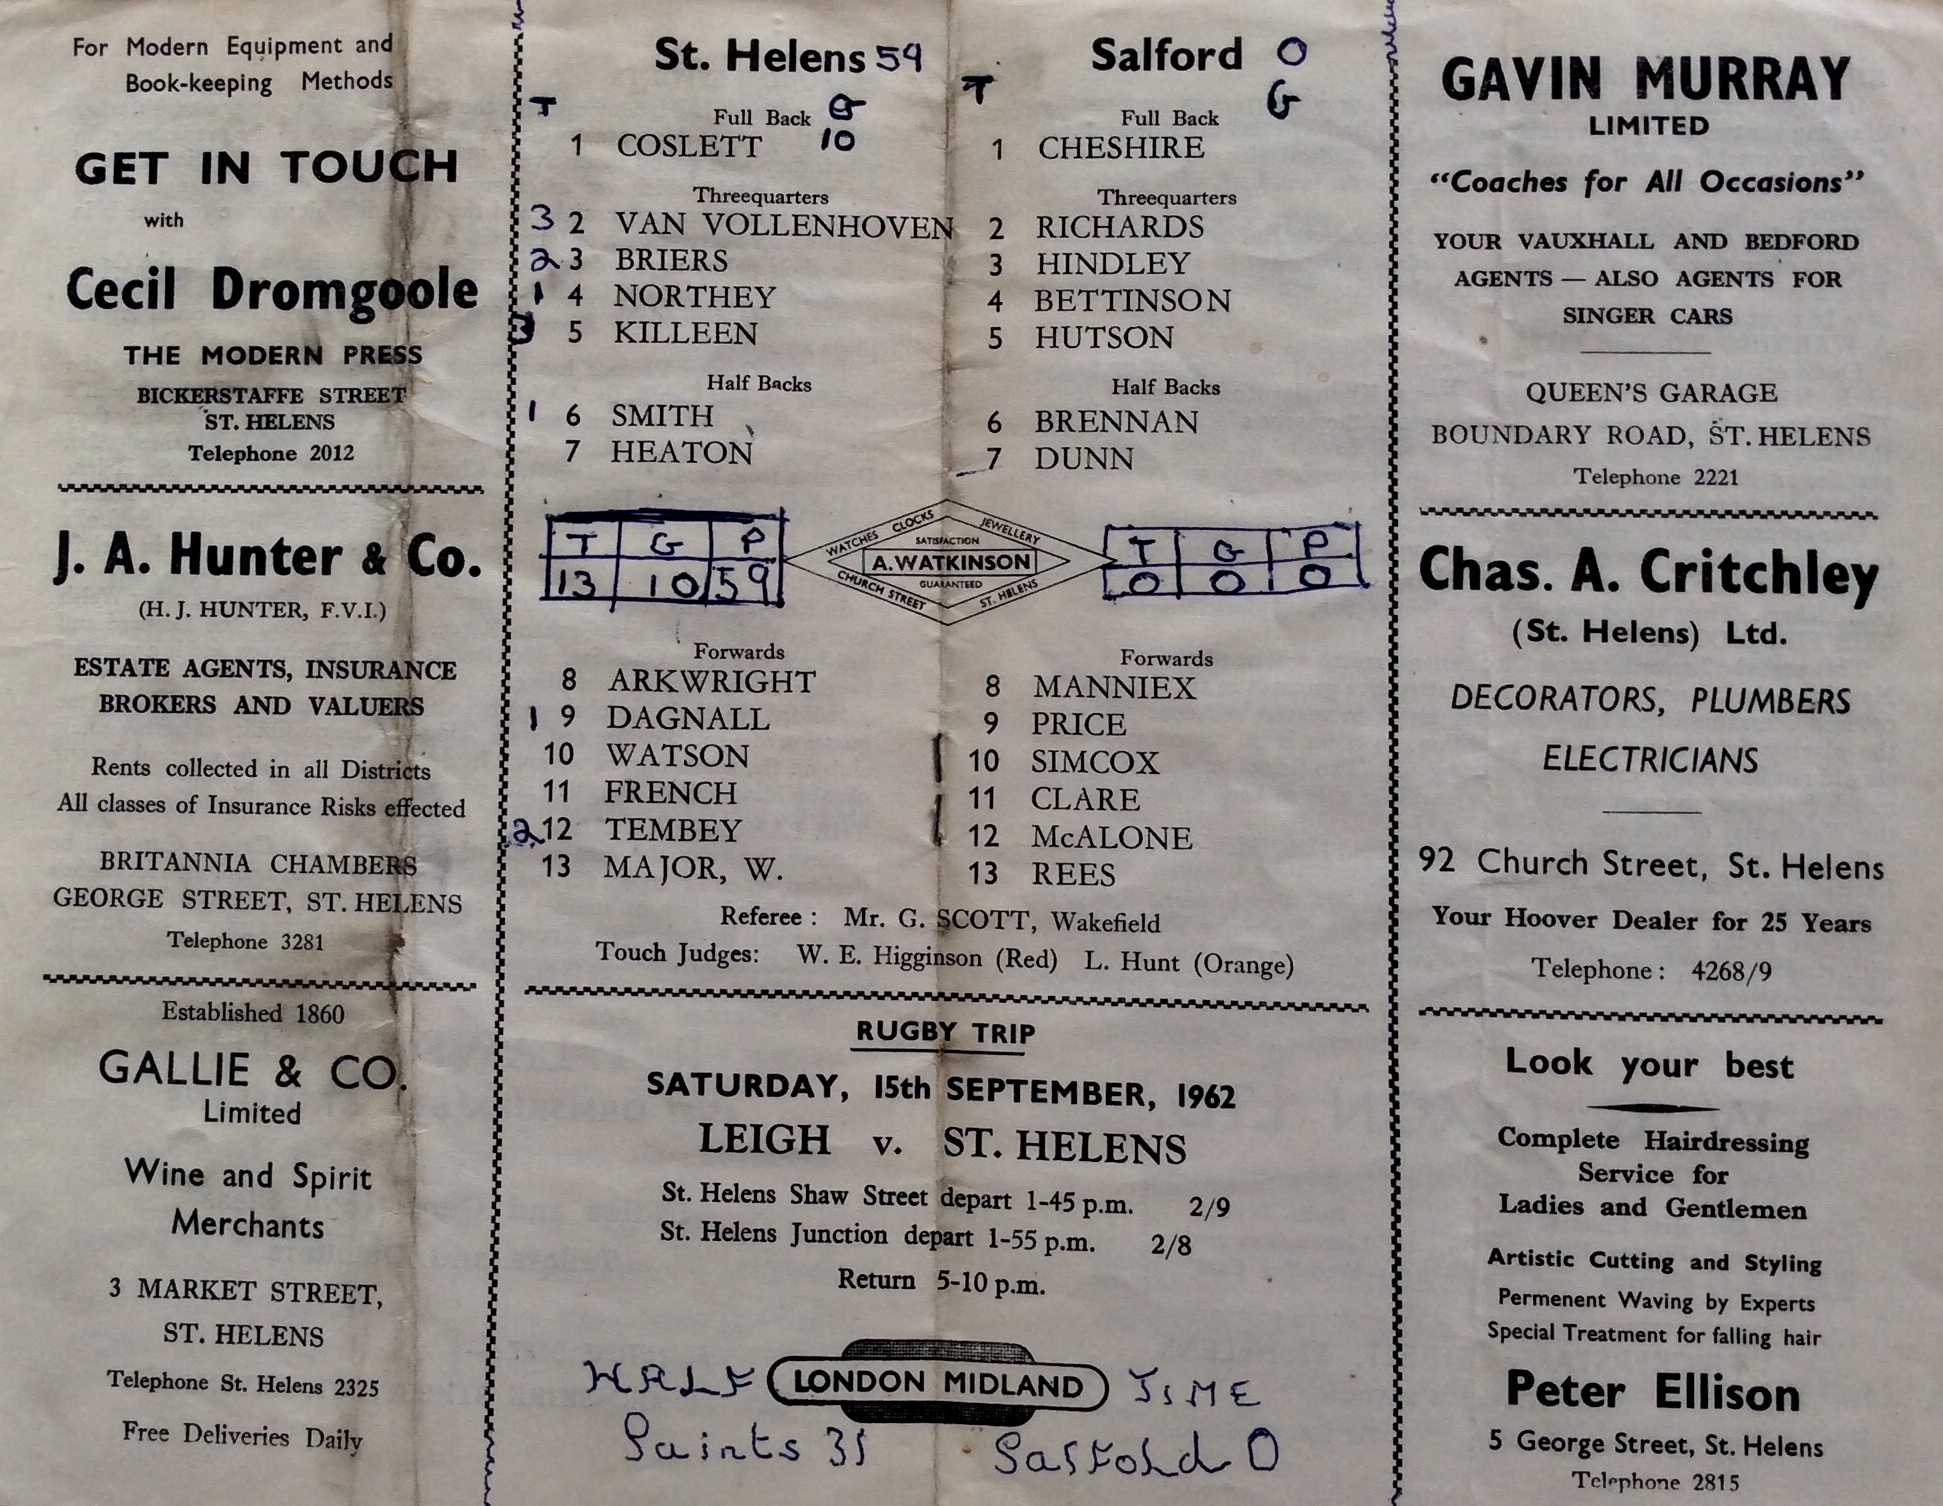 For Modern Equipment and
Book-keeping Methods
GET IN TOUCH
with
Cecil Dromgoole
THE MODERN PRESS
BICKERSTAFFE STREET
ST. HELENS
Telephone 2012
J. A. Hunter & Co.
(H. J. HUNTER, F.V.I.)
ESTATE AGENTS, INSURANCE
BROKERS AND VALUERS
Rents collected in all Districts
All classes of Insurance Risks effected
BRITANNIA CHAMBERS
GEORGE STREET, ST. HELENS
Telephone 3281
Established 1860
GALLIE & CO.
Limited
Wine and Spirit
Merchants
3 MARKET STREET,
ST. HELENS
Telephone St. Helens 2325
Free Deliveries Daily
St. Helens 59
T
Full Back G
1 COSLETT 10
Threequarters
3 2 VAN VOLLENHOVEN
2 3 BRIERS
1 4 NORTHEY
3 5 KILLEEN
Half Backs
1 6 SMITH
7 HEATON
T G P
13 10 59
Forwards
8 ARKWRIGHT
1 9 DAGNALL
10 WATSON
11 FRENCH
2 12 TEMBEY
13 MAJOR, W.
Salford 0
T G
Full Back
1 CHESHIRE
Threequarters
2 RICHARDS
3 HINDLEY
4 BETTINSON
5 HUTSON
Half Backs
6 BRENNAN
7 DUNN
WATCHES CLOCKS JEWELLERY
SATISFACTION
A. WATKINSON
GUARANTEED
CHURCH STREET ST. HELENS
T G P
0 0 0
Forwards
8 MANNIEX
9 PRICE
10 SIMCOX
11 CLARE
12 McALONE
13 REES
Referee : Mr. G. SCOTT, Wakefield
Touch Judges: W. E. Higginson (Red) L. Hunt (Orange)
RUGBY TRIP
SATURDAY, 15th SEPTEMBER, 1962
LEIGH v. ST. HELENS
St. Helens Shaw Street depart 1-45 p.m. 2/9
St. Helens Junction depart 1-55 p.m. 2/8
Return 5-10 p.m.
HALF LONDON MIDLAND TIME
Saints 31 Salford 0
GAVIN MURRAY
LIMITED
"Coaches for All Occasions"
YOUR VAUXHALL AND BEDFORD
AGENTS — ALSO AGENTS FOR
SINGER CARS
QUEEN'S GARAGE
BOUNDARY ROAD, ST. HELENS
Telephone 2221
Chas. A. Critchley
(St. Helens) Ltd.
DECORATORS, PLUMBERS
ELECTRICIANS
92 Church Street, St. Helens
Your Hoover Dealer for 25 Years
Telephone : 4268/9
Look your best
Complete Hairdressing
Service for
Ladies and Gentlemen
Artistic Cutting and Styling
Permenent Waving by Experts
Special Treatment for falling hair
Peter Ellison
5 George Street, St. Helens
Telephone 2815